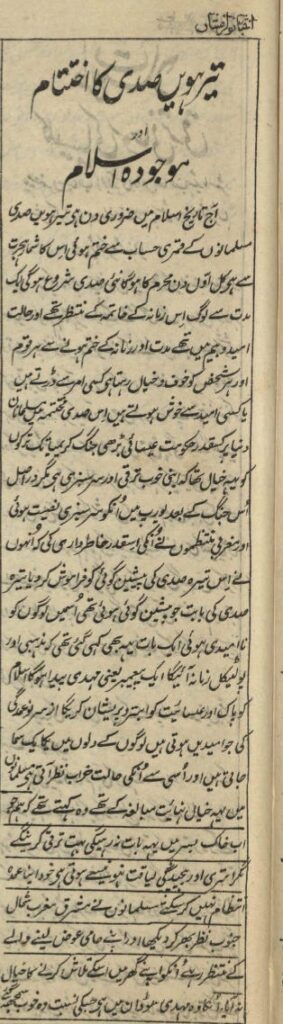 تیرہویں صدی کا اختتام
اور
موجودہ اسلام
آج تاریخ اسلام میں ضروری دن ہی تیرہویں صدی
مسلمانوں کے قمری حساب سے ختم ہوئی اس کا شمار ہجرت
سے ہی کل اول دن محرم کا ہوگا نئی صدی شروع ہوگی ایک
مدت سے لوگ اس زمانہ کے خاتمہ کے منتظر تھے اور حالت
امید و بیم میں تھے مدت اور زمانہ کے ختم ہونے سے ہر قوم
اور ہر شخص کو خوف و خیال رہتا ہی کسی امر سے ڈرتے ہیں
یا کسی امید سے خوش ہوتے ہیں اس صدی مختتمہ میں مسلمانان
دنیا پر کسقدر حکومت عیسائی بڑھی جنگ کریمیا تک ترکوں
کو یہہ خیال تھا کہ اپنی خوب ترقی اور سرسبزی ہی مگر در اصل
اُس جنگ کے بعد یورپ میں اُنکو سرسبزی نصیب ہوئی
اور مغربی منتظموں نے اُنکی اسقدر خاطرداری کی کہ اُنہوں
نے اس تیرہ صدی کی پیشین گوئی کو فراموش کر دیا تیرہ
صدی کی بابت جو پیشین گوئی ہوئی تھی اُسمیں لوگوں کو
نا امیدی ہوئی ایک بات یہہ بھی کہی گئی تھی کہ مذہبی اور
پولٹیکل زمانہ آئیگا ایک پیغمبر یعنی مہدی پیدا ہوگا اسلام
کو پاک اور عیسائیت کو ابتر و پریشان کریگا از سر نو عمدگی
کی جو امیدیں ہوتی ہیں لوگوں کے دلوں میں یکایک سما
جاتی ہیں اور اُسی سے اُنکی حالت خراب نظر آتی ہی مسلمانوں
میں یہہ خیال نہایت مبالغہ کے تھے وہ کہتے تھے کہ ہم جو
اب خاک بسر ہیں یہہ بات نہ رہیگی بہت ترقی کرینگے
مگر ابتری اور لیاقت نہونیسے ہوئی ہی خود اپنا عمدہ
انتظام نہیں کر سکتے مسلمانوں نے مشرق مغرب شمال
جنوب نظر بھر کر دیکھا اور اپنے حامی عوض لینے والے
کے منتظر رہے اُنکو اپنے گھر میں اسکے تلاش کرنے کا خیال
نہ آیا وہ مہدی سوڈان میں ہی جسکی نسبت وہ خوب